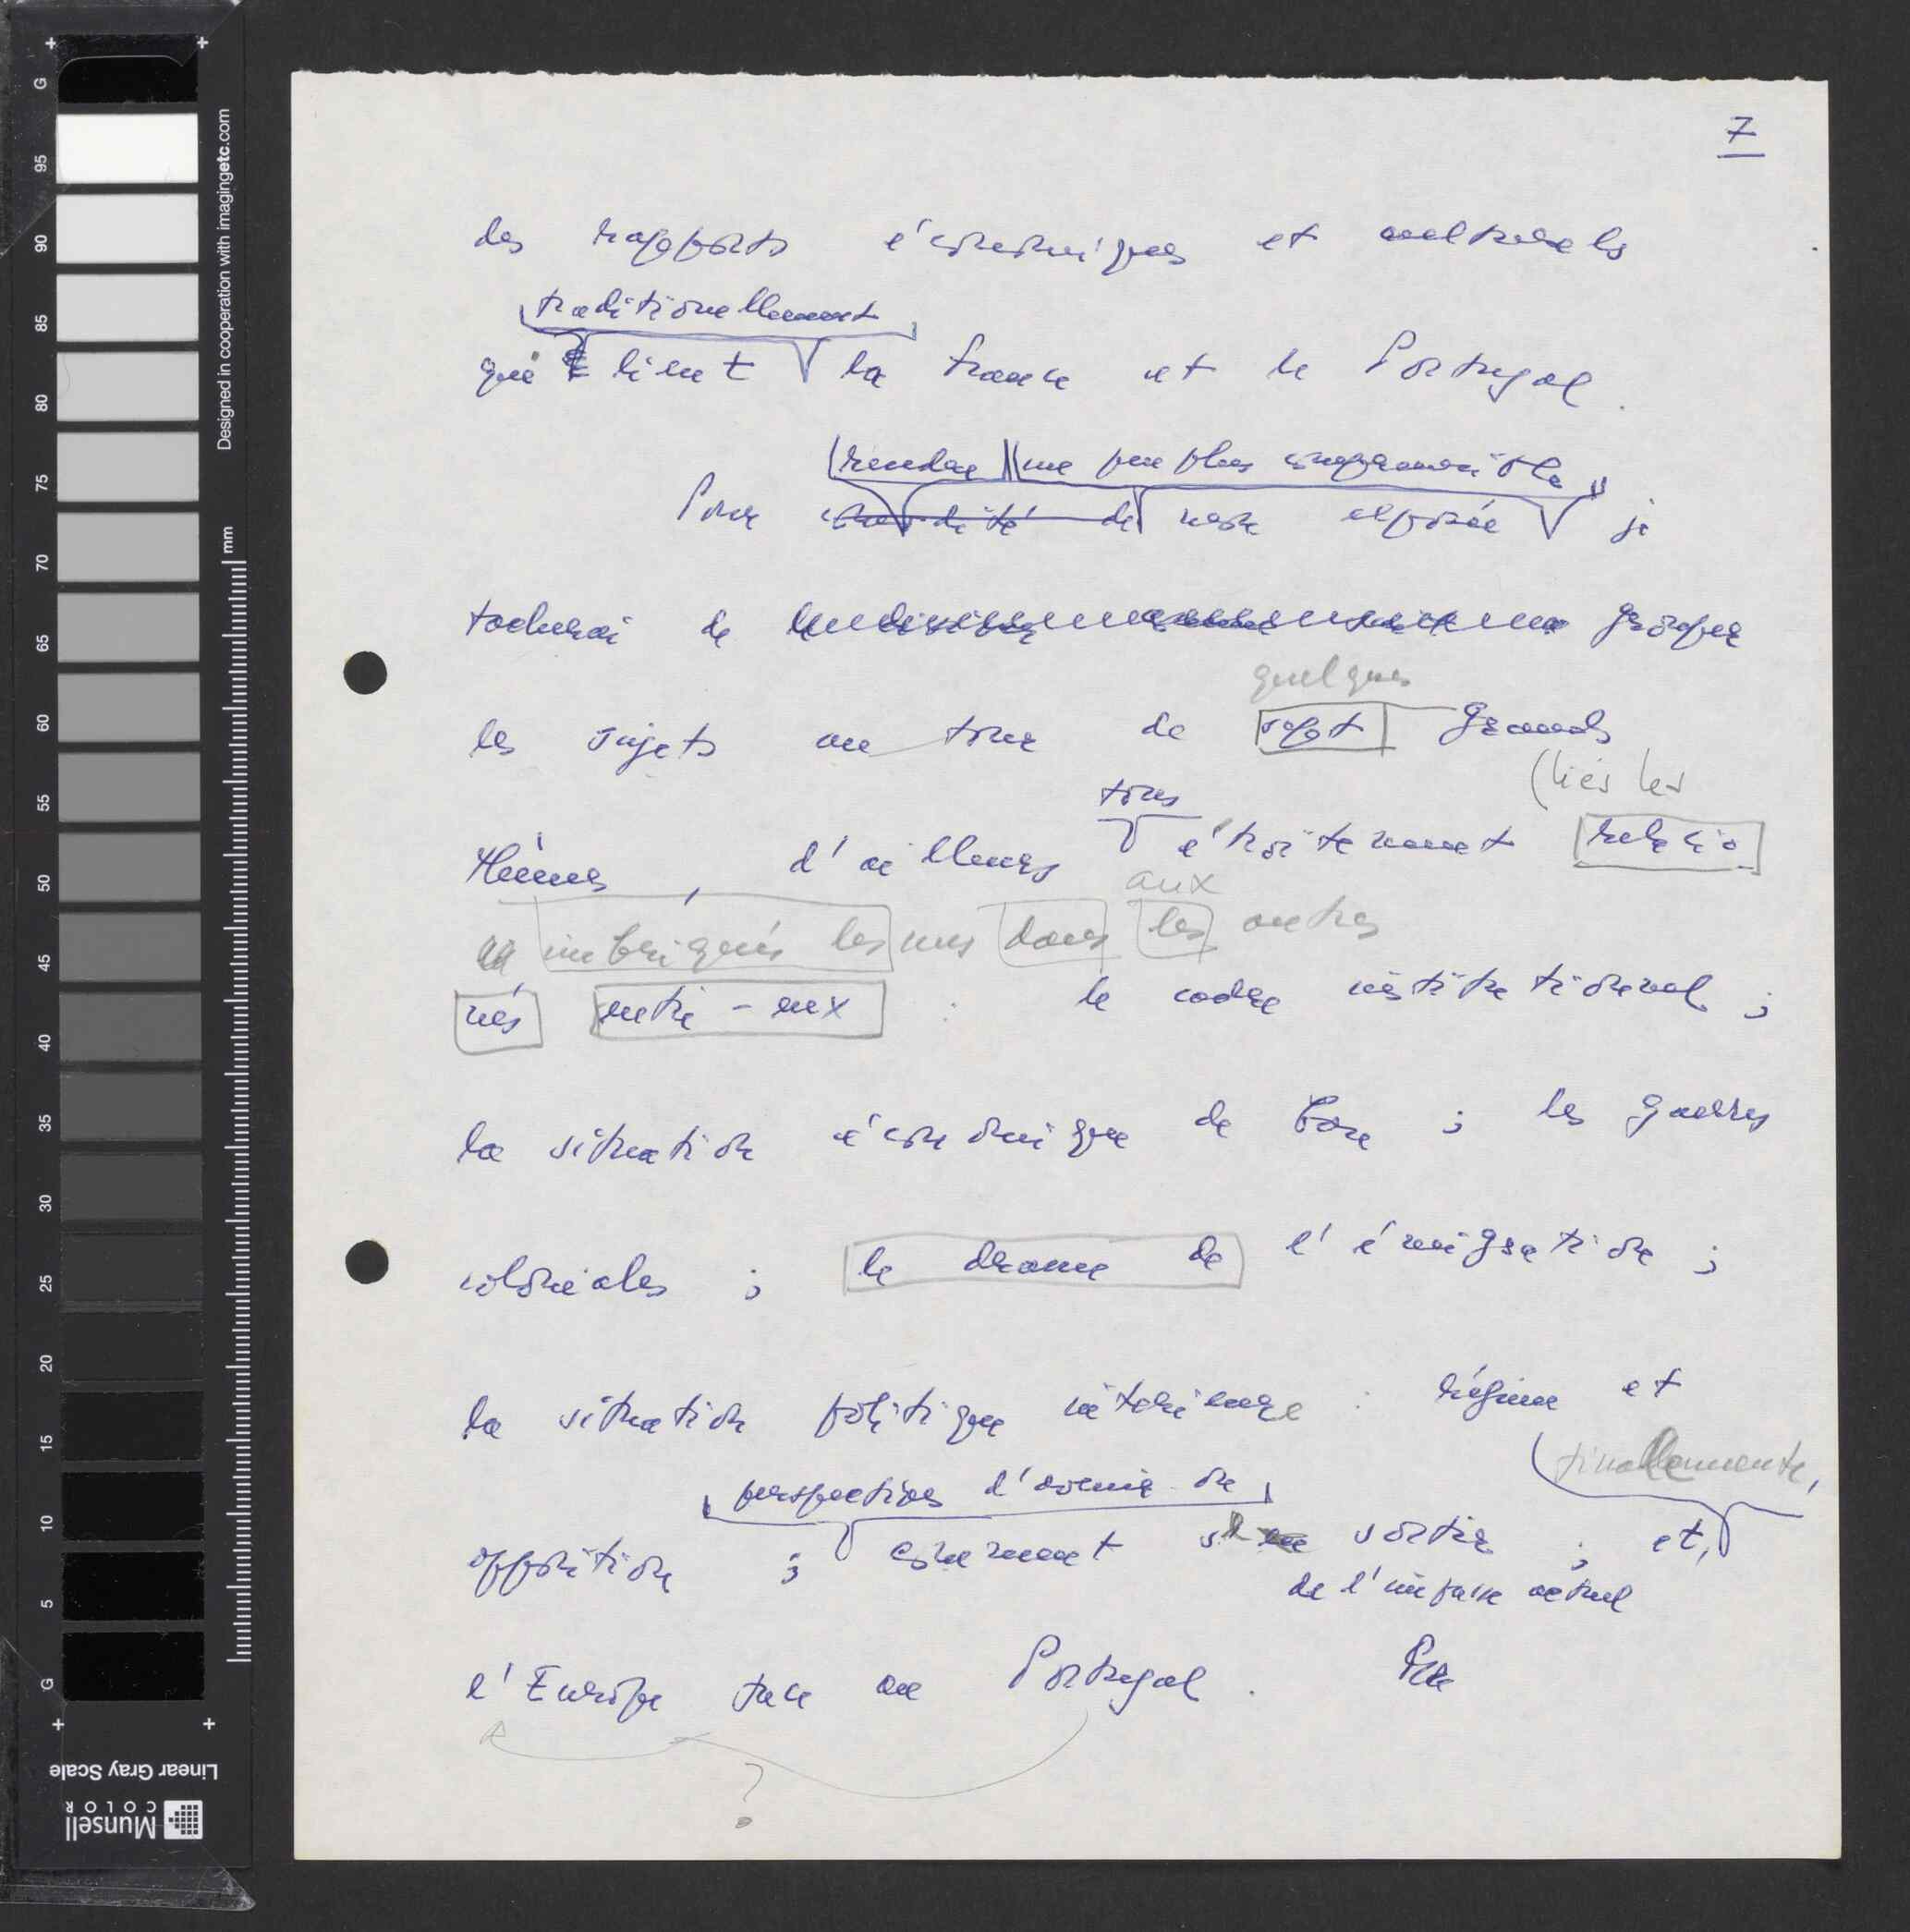 7
des rapports économiques et culturels
traditionellement
qui lient la France et le Portugal.
rendre un peu plus
Pour commodité de exposée je
tacherai de groper
quelques
les sujets au tour de sept grands
(liés les
tous
thèmes, d'ailleurs étroitement relacio
aux
imbriqués les uns dans les autres
nés entre-eux : le cadre institutional ;
la situation économique de base ; les guerres
coloniales ; le drame de l'émigration ;
la situation politique intérieure : régime et
finallemente,
perspectives d'avenir ou
opposition ; comment sortir ; et,
de l'impasse actuel
l'Europe face au Portugal.
?
G 95 90 85 80 75 70 65 60 55 50 45 40 35 30 25 20 15 10 5 G
Designed in cooperation with imagingetc.com
mm
Linear Gray Scale
Munsell
COLOR